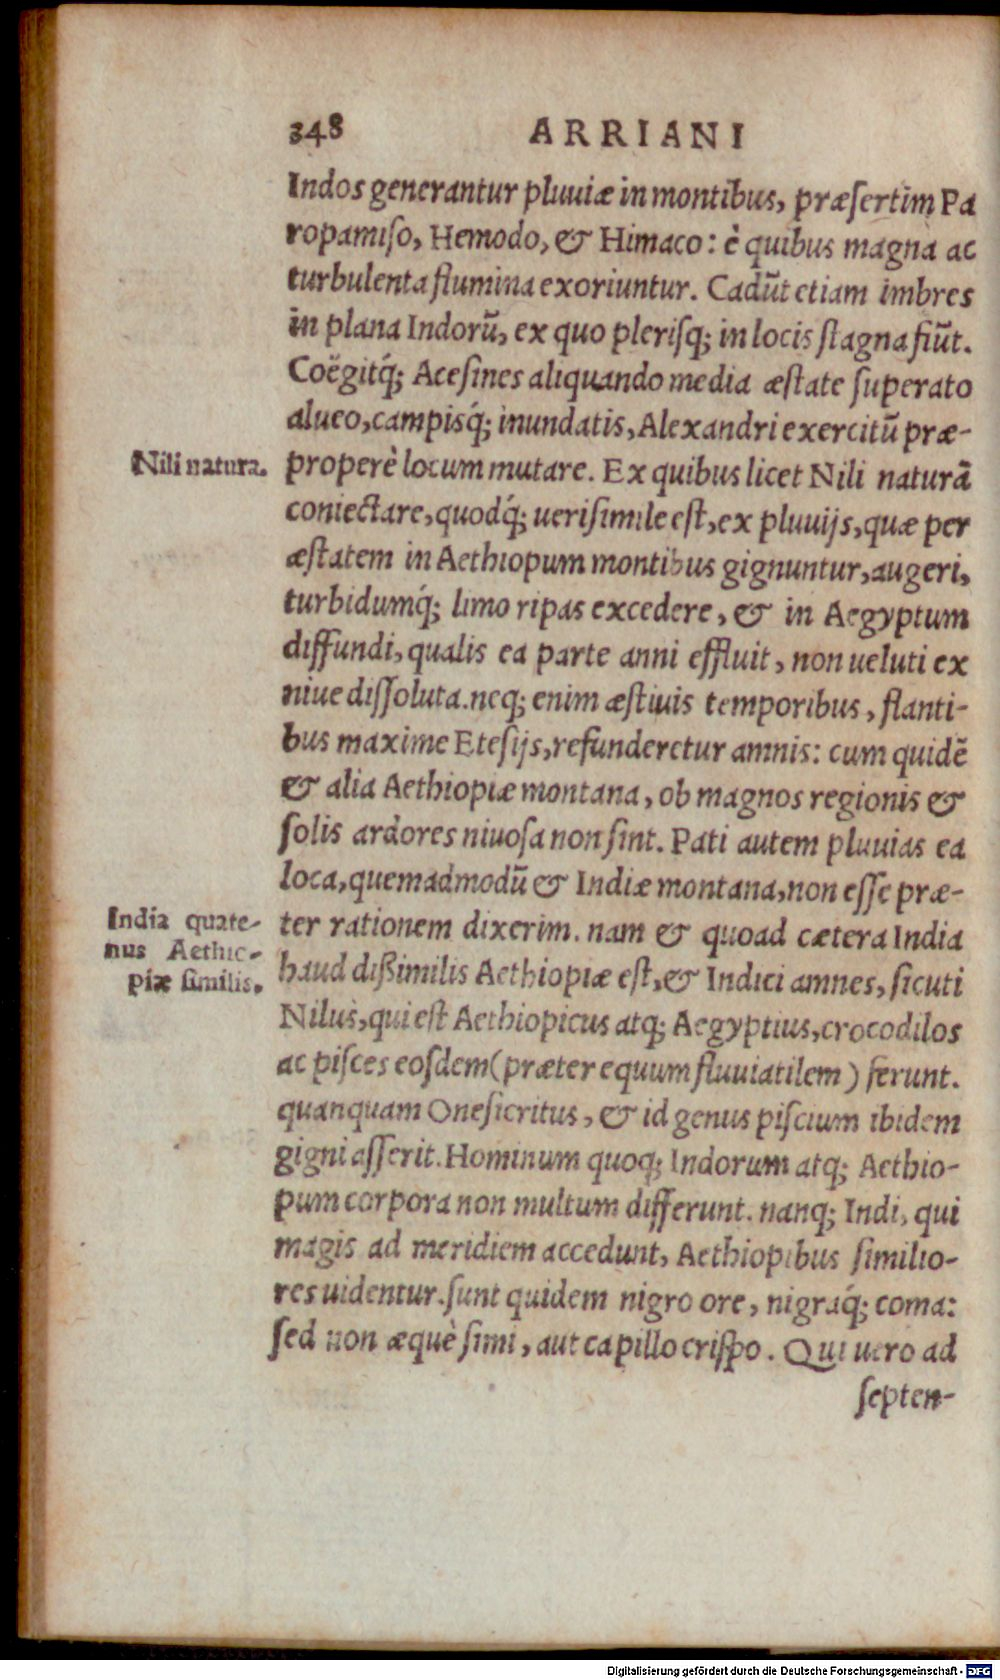 348 ARRIANI
Indos generantur pluuiæ in montibus, præsertim Pa
ropamiso, Hemodo, & Himaco: è quibus magna ac
turbulenta flumina exoriuntur. Cadūt etiam imbres
in plana Indorū, ex quo plerisq; in locis stagna fiūt.
Coëgitq́; Acesines aliquando media æstate superato
alueo, campisq́; inundatis, Alexandri exercitū præ-
Nili natura.
properè locum mutare. Ex quibus licet Nili naturā
coniectare, quodq́; uerisimile est, ex pluuijs, quæ per
æstatem in Aethiopum montibus gignuntur, augeri,
turbidumq́; limo ripas excedere, & in Aegyptum
diffundi, qualis ea parte anni effluit, non ueluti ex
niue dissoluta. neq; enim æstiuis temporibus, flanti-
bus maxime Etesijs, refunderetur amnis: cum quidē
& alia Aethiopiæ montana, ob magnos regionis &
solis ardores niuosa non sint. Pati autem pluuias ea
loca, quemadmodū & Indiæ montana, non esse præ-
India quate-
nus Aethio-
piæ similis.
ter rationem dixerim. nam & quoad cætera India
haud dißimilis Aethiopiæ est, & Indici amnes, sicuti
Nilus, qui est Aethiopicus atq; Aegyptius, crocodilos
ac pisces eosdem (præter equum fluuiatilem) ferunt.
quanquam Onesicritus, & id genus piscium ibidem
gigni asserit. Hominum quoq; Indorum atq; Aethio-
pum corpora non multum differunt. nanq; Indi, qui
magis ad meridiem accedunt, Aethiopibus similio-
res uidentur. sunt quidem nigro ore, nigraq́; coma:
sed non æquè simi, aut capillo crispo. Qui uero ad
septen-
Digitalisierung gefördert durch die Deutsche Forschungsgemeinschaft - DFG